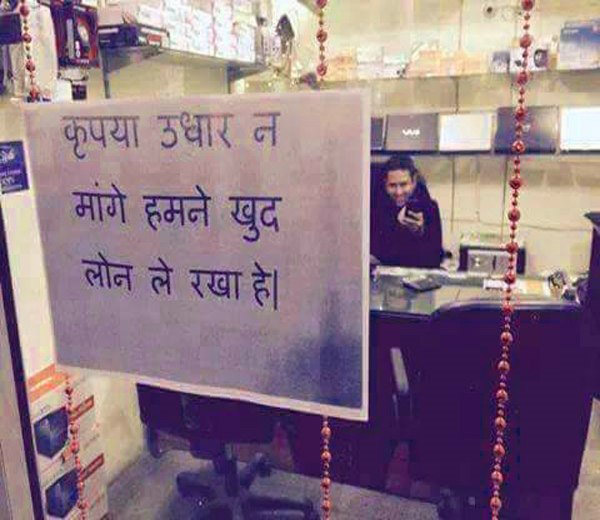 कृपया उधार न
मांगे हमने खुद
लोन ले रखा हे।